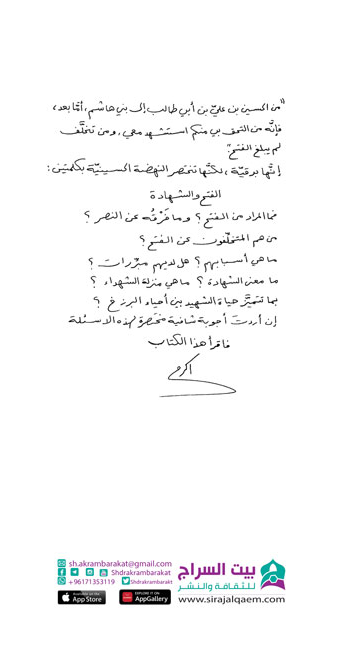 "من الحسين بن عليّ بن أبي طالب إلى بني هاشم، أمّا بعد،
فإنّه من التحق بي منكم استشهد معي، ومن تخلّف
لم يبلغ الفتح".
إنّها برقيّة، لكنّها تختصر النهضة الحسينيّة بكلمتين:
الفتح والشهادة
فما المراد من الفتح؟ وما فَرْقُه عن النصر؟
من هم المتخلّفون عن الفتح؟
ما هي أسبابهم؟ هل لديهم مبرّرات؟
ما معنى الشهادة؟ ما هي منزلة الشهداء؟
بما تتميّز حياة الشهيد بين أحياء البرزخ؟
إن أردت أجوبة شافية مختصرة لهذه الأسئلة
فاقرأ هذا الكتاب
أكرم
sh.akrambarakat@gmail.com
Shdrakrambarakat
+96171353119 Shdrakrambarakt
بيت السراج
للثقافة والنشر
Available on the App Store
EXPLORE IT ON AppGallery
www.sirajalqaem.com